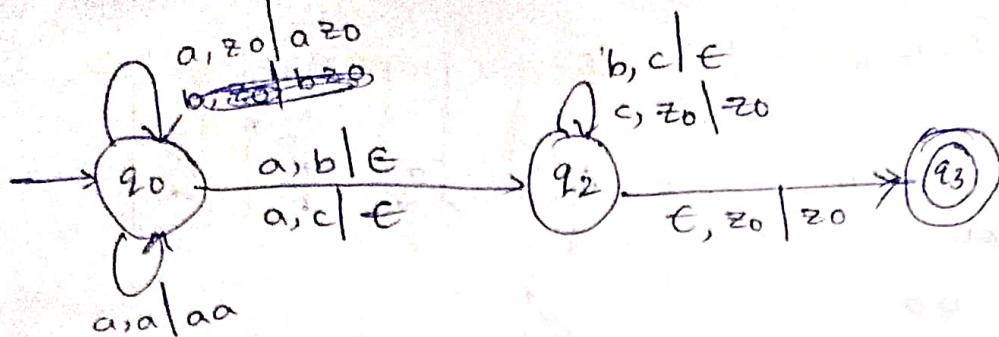 a, z0 | a z0
b, z0 | b z0,
b, c | ϵ
c, z0 | z0
q0
a, b | ϵ
a, c | ϵ
q2
ϵ, z0 | z0
q3
a, a | aa